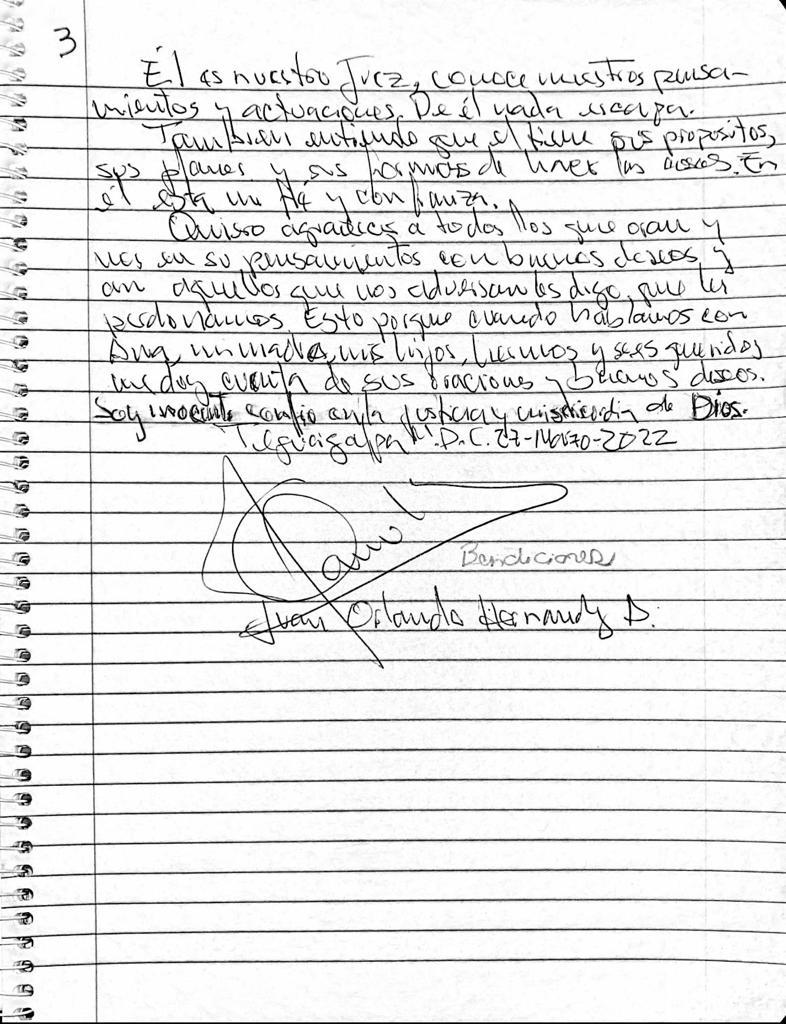 3
Él es nuestro Juez, conoce nuestros pensa-
mientos y actuaciones. De él nada escapa.
También entiendo que el tiene sus propositos,
sus planes y sus formas de hacer las cosas. En
él está mi fé y confianza.
Quisro agradecer a todos los que oran y
nos en su pensamientos con buenos deseos, y
an aquellos que nos adversan les digo, que les
perdonamos. Esto porque cuando hablamos con
Ana, mi madre, mis hijos, hermnos y seres queridos
me doy cuenta de sus oraciones y buenos deseos.
Soy inocente confio en la justicia y misericordia de Dios.
Tegucigalpa M.D.C. 27-Marzo-2022
Bendiciones
Juan Orlando Hernandez A.